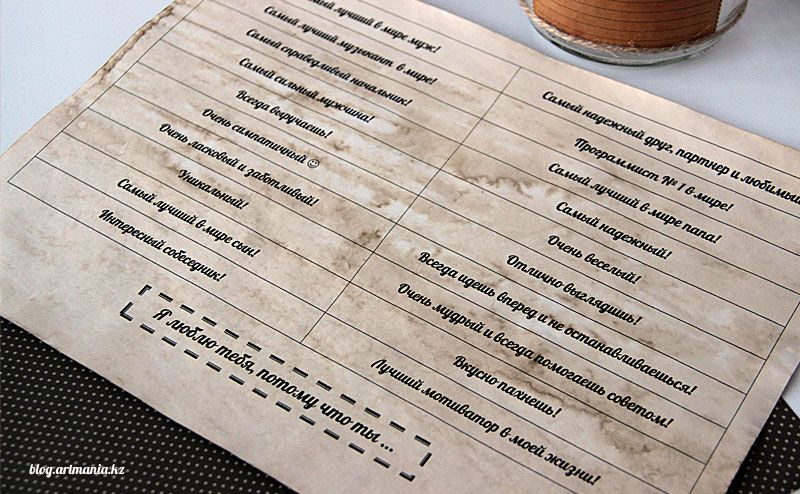 Самый лучший в мире муж!
Самый лучший музыкант в мире!
Самый справедливый начальник!
Самый сильный мужчина!
Всегда выручаешь!
Очень симпатичный ☺
Очень ласковый и заботливый!
Уникальный!
Самый лучший в мире сын!
Интересный собеседник!
Самый надежный друг, партнер и любимый
Программист № 1 в мире!
Самый лучший в мире папа!
Самый надежный!
Очень веселый!
Отлично выглядишь!
Всегда идешь вперед и не останавливаешься!
Очень мудрый и всегда помогаешь советом!
Вкусно пахнешь!
Лучший мотиватор в моей жизни!
Я люблю тебя, потому что ты ...
blog.artmania.kz